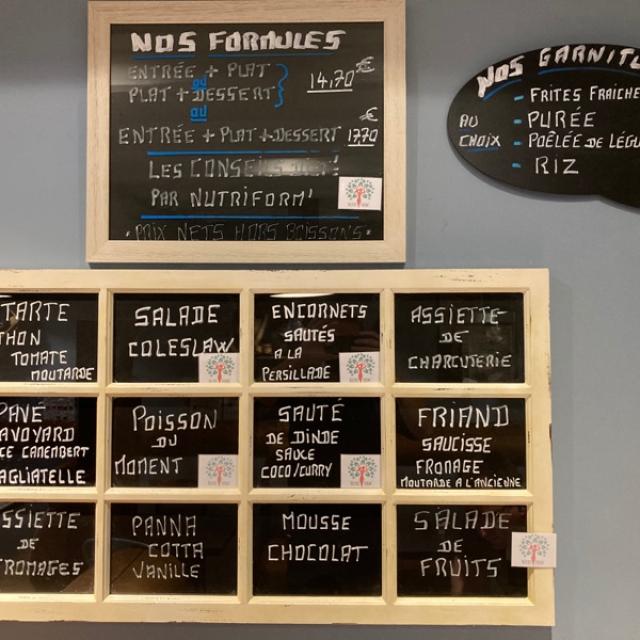 NOS FORMULES
ENTRÉE + PLAT
OU
PLAT + DESSERT
14,70 €
OU
ENTRÉE + PLAT + DESSERT 17,70 €
LES CONSEILS
PAR NUTRIFORM'
• PRIX NETS HORS BOISSONS •
NOS GARNITU
AU CHOIX
- FRITES FRAICHE
- PURÉE
- POÊLÉE DE LÉGU
- RIZ
TARTE
THON
TOMATE
MOUTARDE
SALADE
COLESLAW
ENCORNETS
SAUTÉS
A LA
PERSILLADE
ASSIETTE
DE
CHARCUTERIE
PAVÉ
AVOYARD
CE CAMEMBERT
AGLIATELLE
POISSON
DU
MOMENT
SAUTÉ
DE DINDE
SAUCE
COCO/CURRY
FRIAND
SAUCISSE
FROMAGE
MOUTARDE A L'ANCIENNE
SSIETTE
DE
ROMAGES
PANNA
COTTA
VANILLE
MOUSSE
CHOCOLAT
SALADE
DE
FRUITS